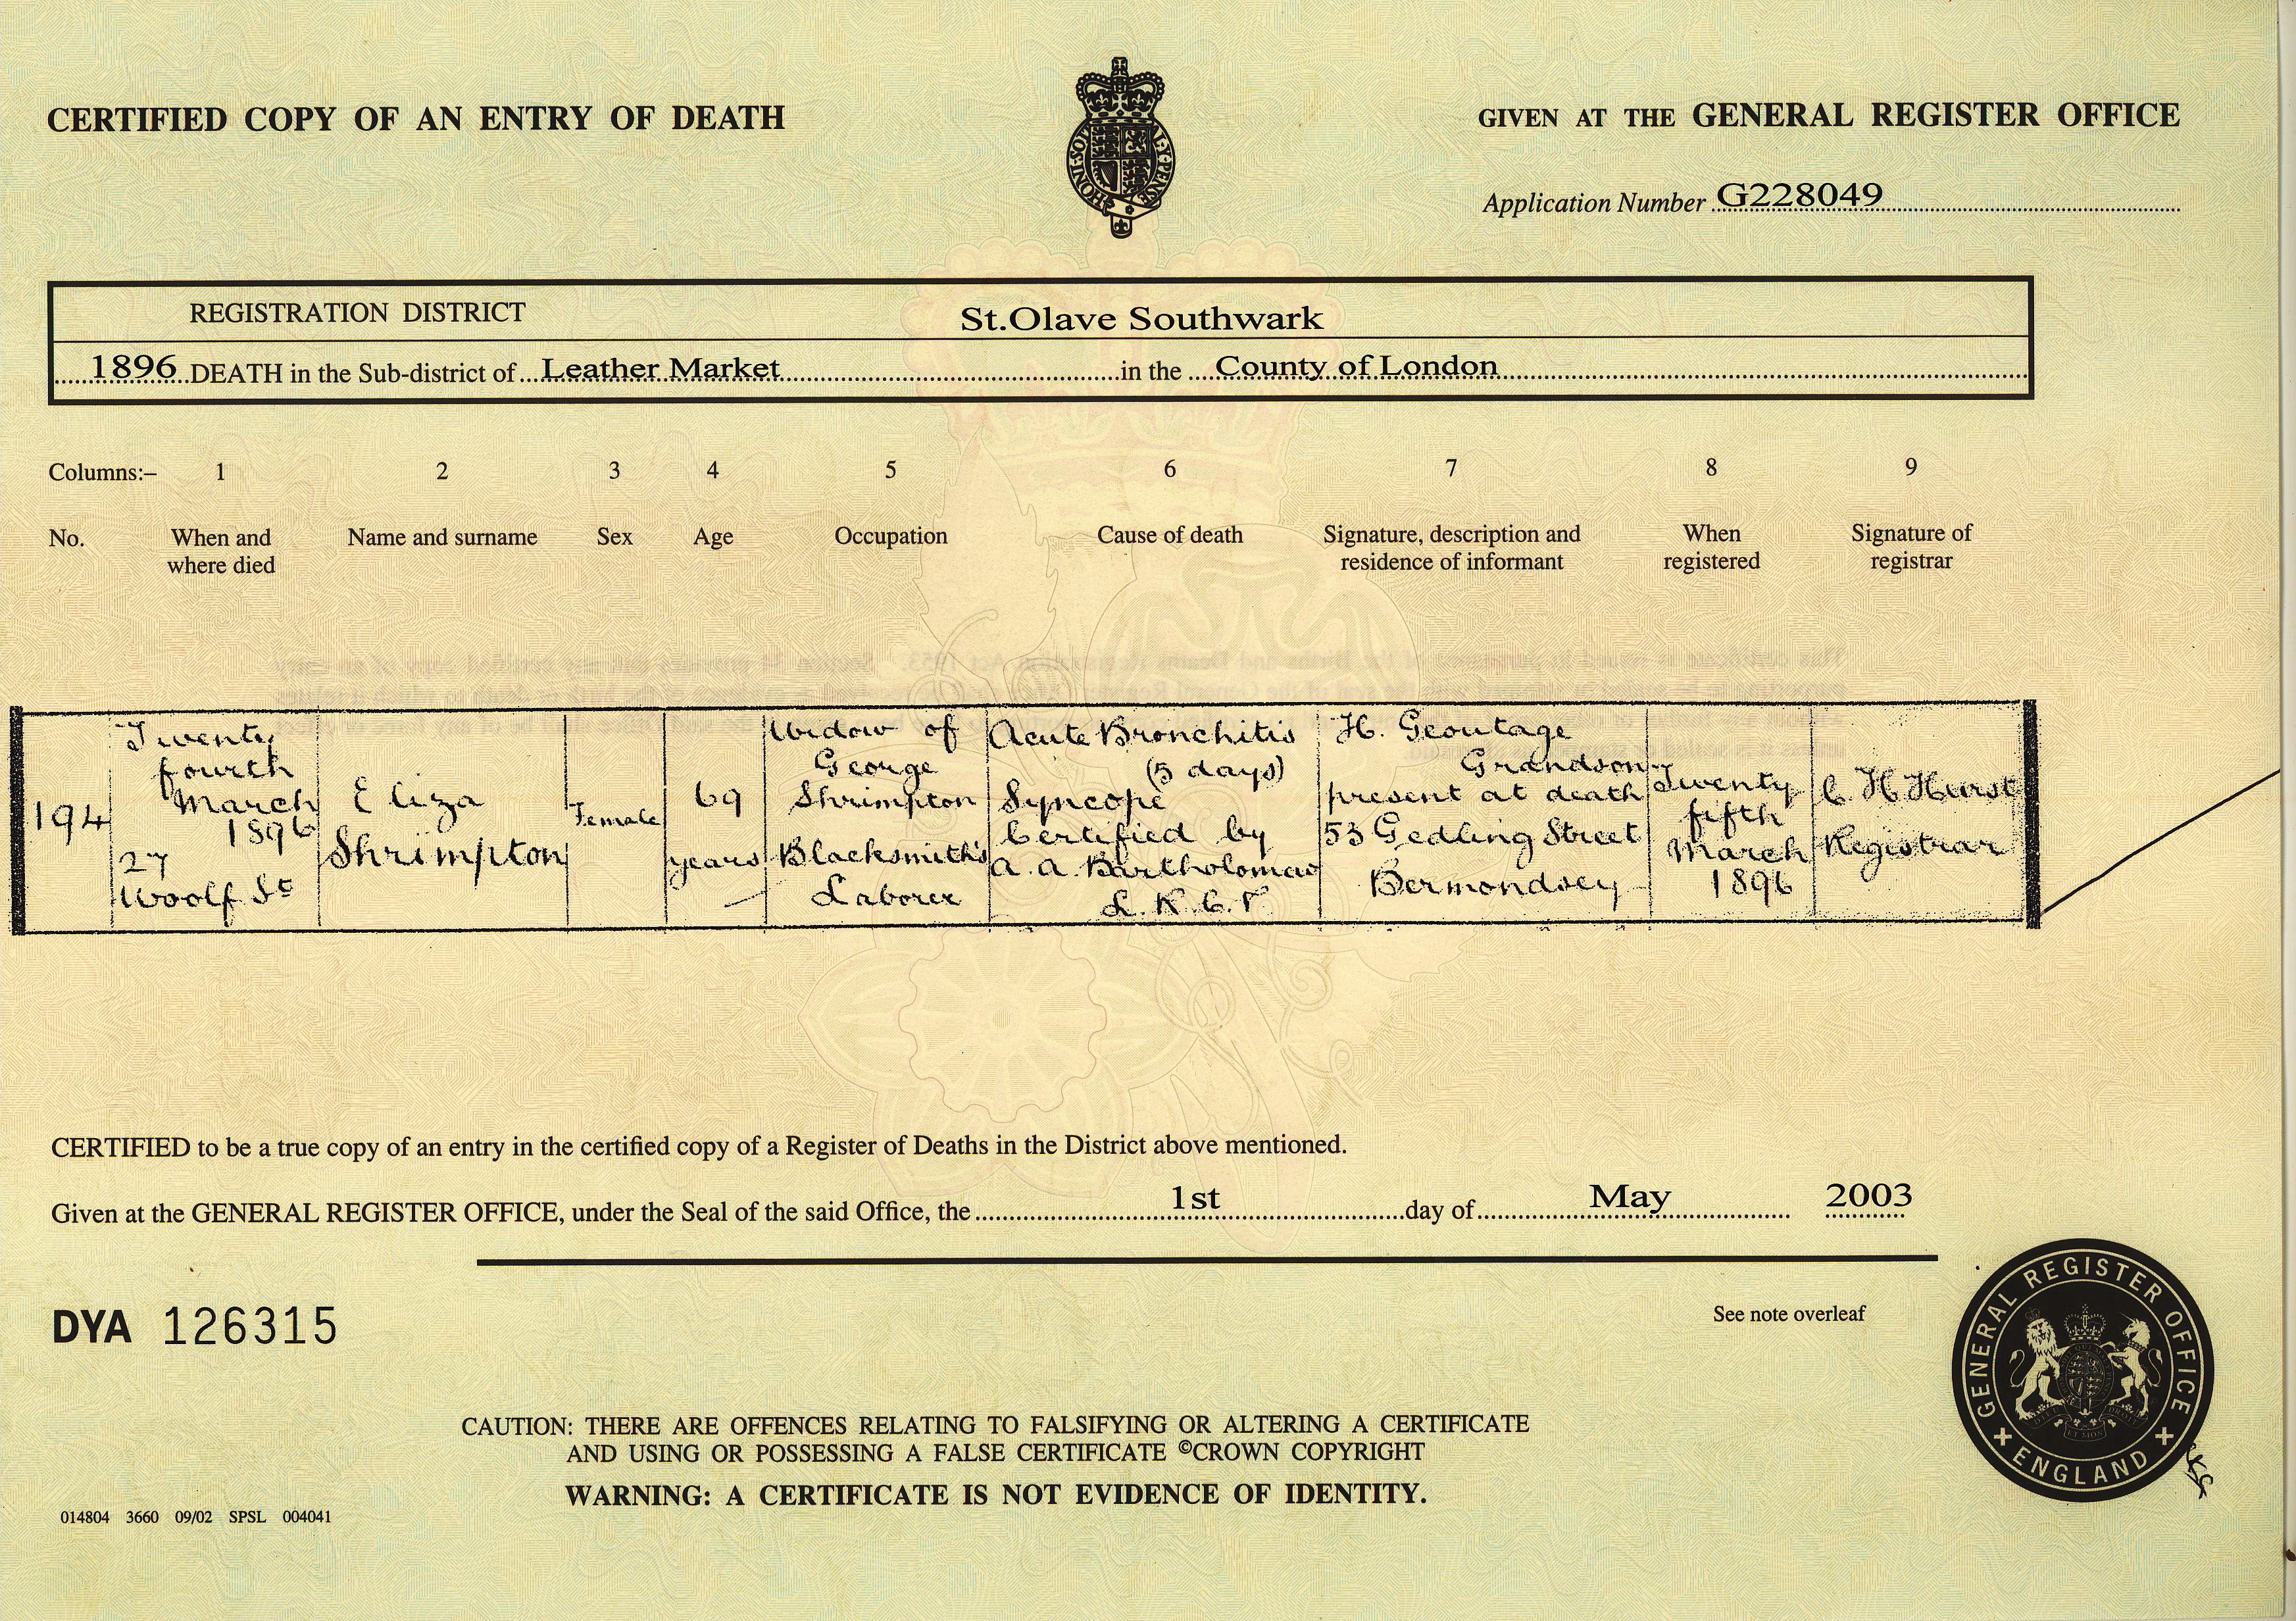 CERTIFIED COPY OF AN ENTRY OF DEATH
GIVEN AT THE GENERAL REGISTER OFFICE
HONI·SOIT MAL·Y·PENSE
Application Number G228049
REGISTRATION DISTRICT St.Olave Southwark
1896 DEATH in the Sub-district of Leather Market in the County of London
Columns:– 1 2 3 4 5 6 7 8 9
No.
When and
where died
Name and surname
Sex
Age
Occupation
Cause of death
Signature, description and
residence of informant
When
registered
Signature of
registrar
194
Twenty
fourth
March
1896
27
Woolf St
Eliza
Shrimpton
Female
69
years
Widow of
George
Shrimpton
Blacksmith's
Laborer
Acute Bronchitis
(5 days)
Syncope
Certified by
A. A. Bartholomew
L. R. C. P
H. Geoutage
Grandson
present at death
53 Gedling Street
Bermondsey
Twenty
fifth
March
1896
C. H. Hurst
Registrar
CERTIFIED to be a true copy of an entry in the certified copy of a Register of Deaths in the District above mentioned.
Given at the GENERAL REGISTER OFFICE, under the Seal of the said Office, the 1st day of May 2003
DYA 126315
See note overleaf
GENERAL REGISTER OFFICE
ENGLAND
CAUTION: THERE ARE OFFENCES RELATING TO FALSIFYING OR ALTERING A CERTIFICATE
AND USING OR POSSESSING A FALSE CERTIFICATE ©CROWN COPYRIGHT
WARNING: A CERTIFICATE IS NOT EVIDENCE OF IDENTITY.
014804 3660 09/02 SPSL 004041